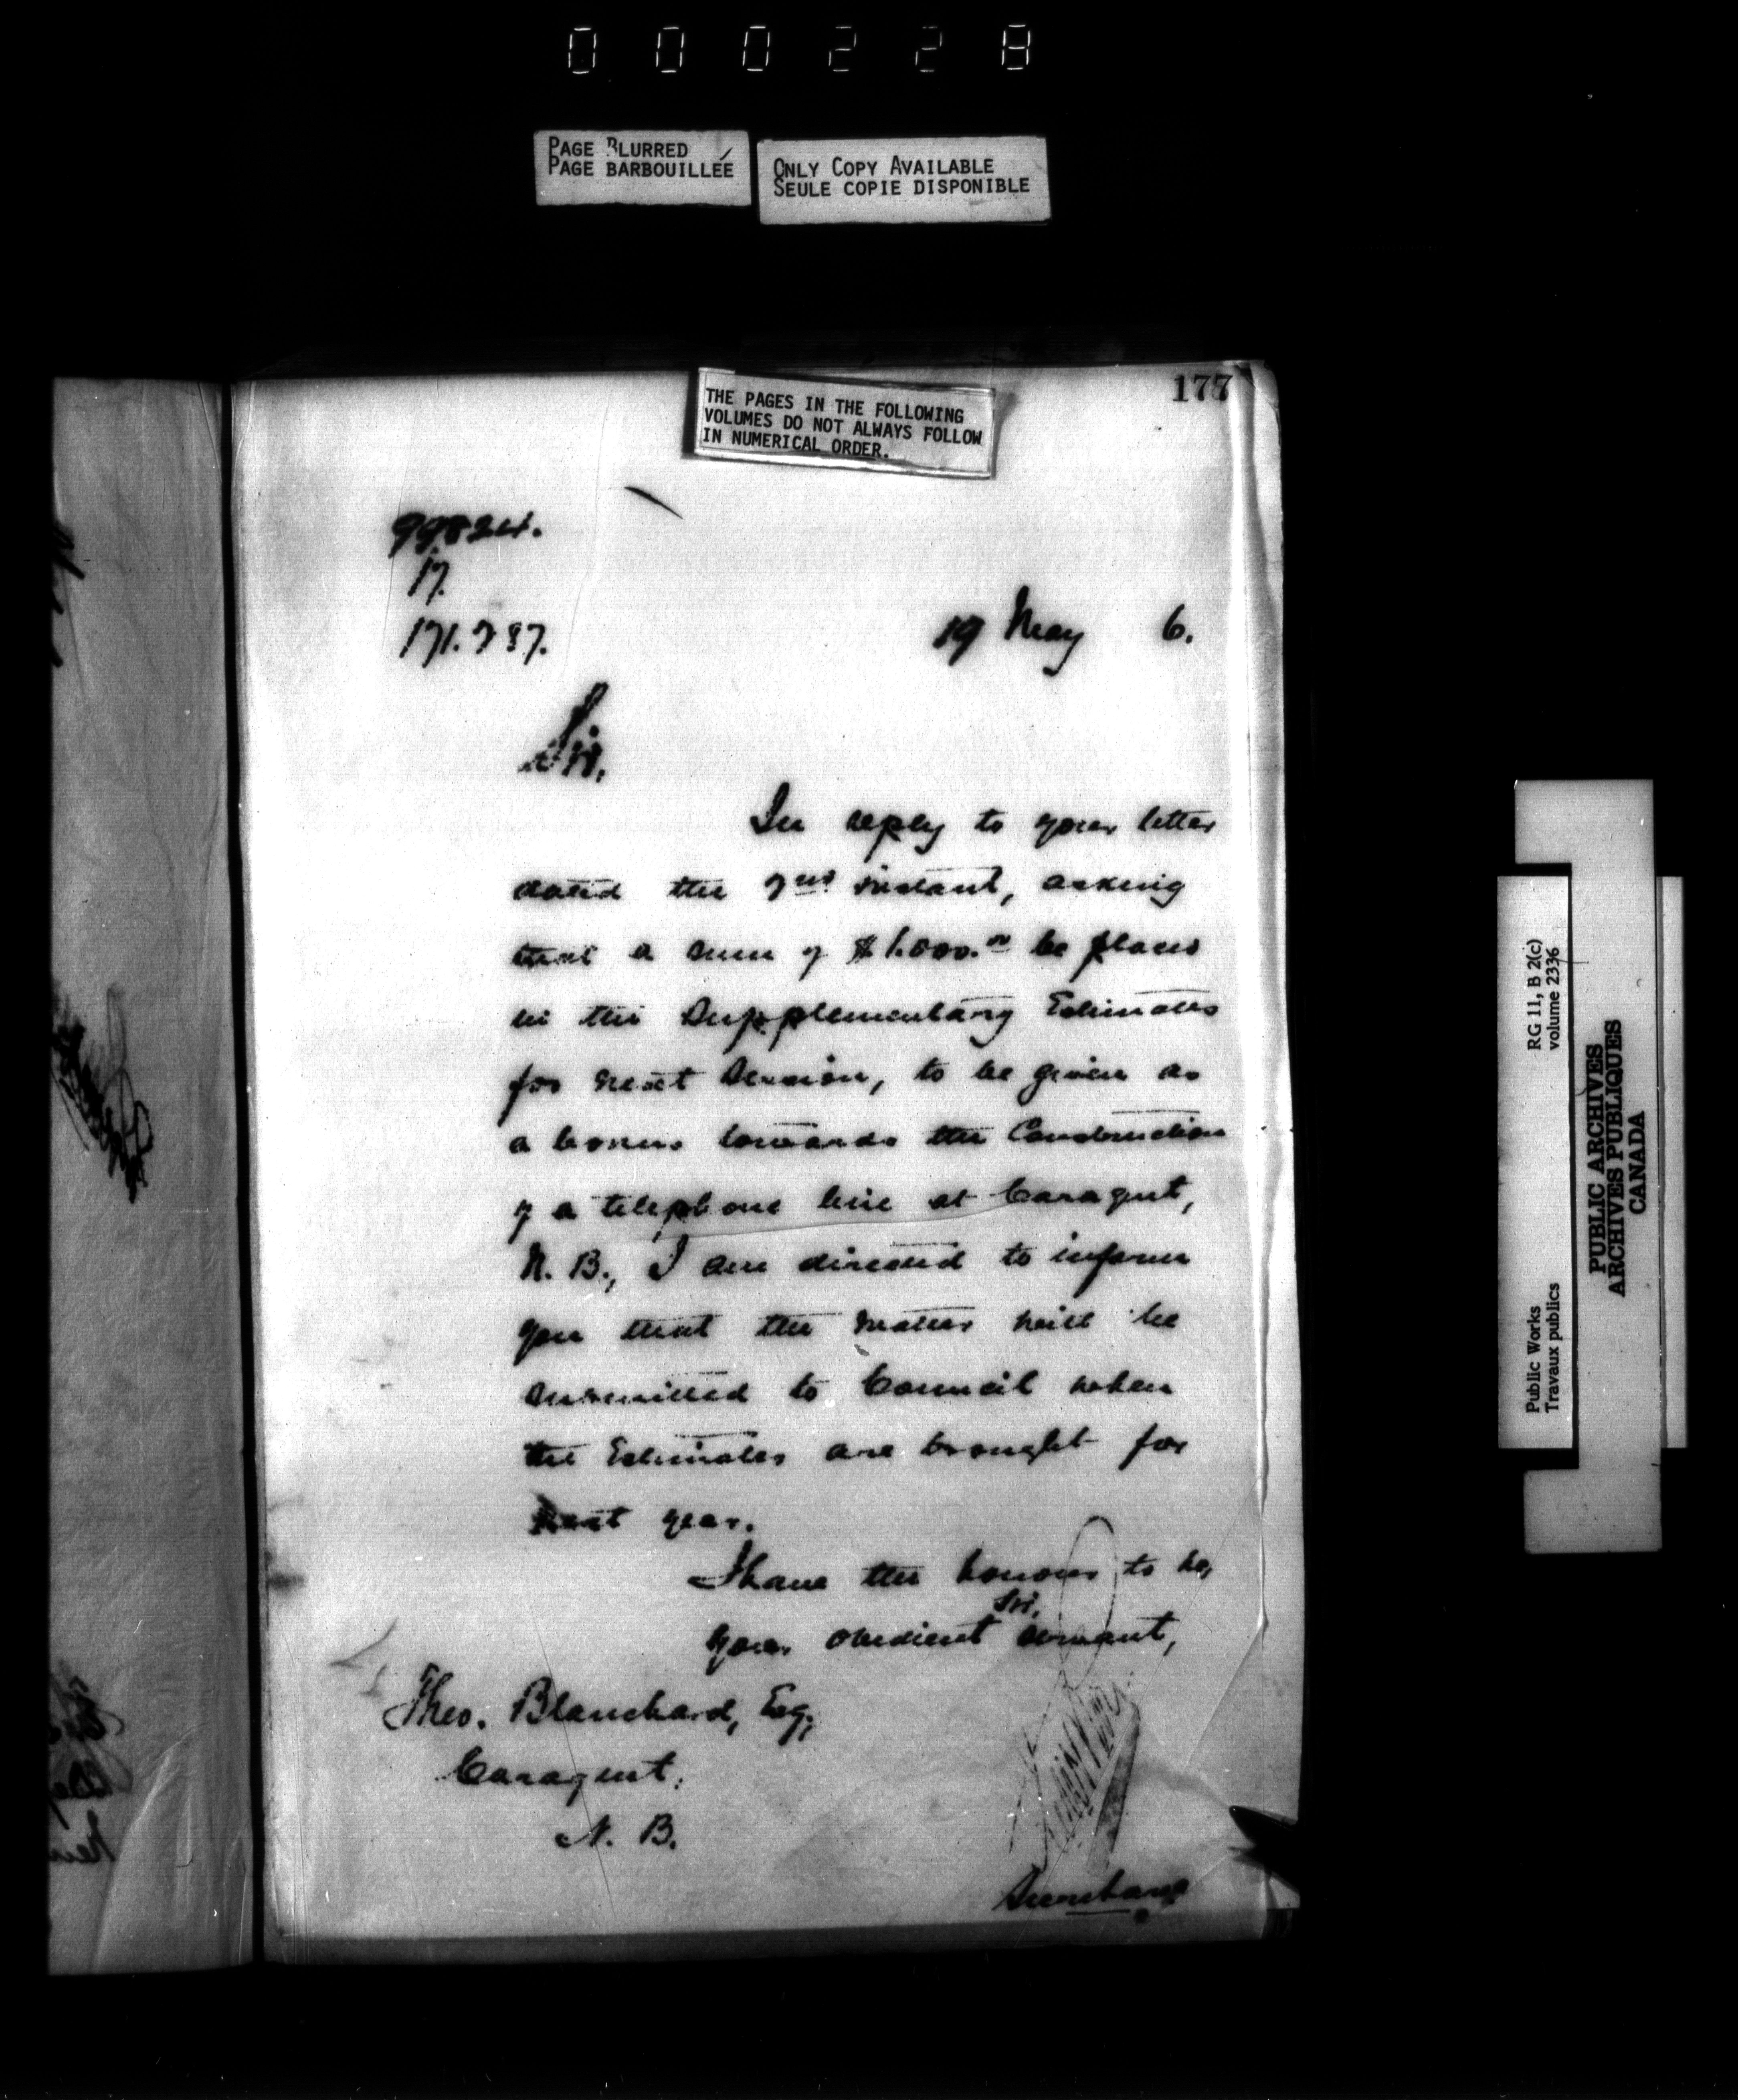 000228
PAGE BLURRED
PAGE BARBOUILLÉE
ONLY COPY AVAILABLE
SEULE COPIE DISPONIBLE
177
THE PAGES IN THE FOLLOWING
VOLUMES DO NOT ALWAYS FOLLOW
IN NUMERICAL ORDER.
99824.
17.
171.787.
19 May 6.
Sir,
In reply to your letter
dated the instant, asking
that a sum of $1.000.00 be placed
in the Supplementary Estimates
for next Session, to be given as
a bonus towards the Construction
of a telephone line at Caraquet,
N. B., I am directed to inform
you that the matter will be
submitted to Council when
the Estimates are brought for
next year.
I have the honour to be,
Sir,
Your obedient servant,
Theo. Blanchard, Esq.,
Caraquet,
N. B.
Secretary
Public Works
Travaux publics
RG 11, B 2(c)
volume 2336
PUBLIC ARCHIVES
ARCHIVES PUBLIQUES
CANADA